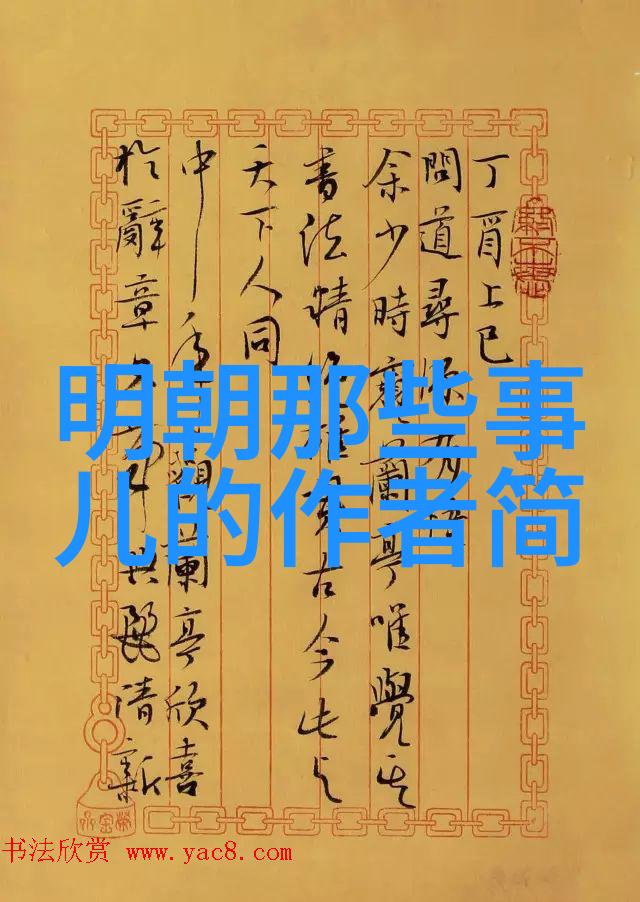 丁酉上巳
問道尋源
余少時蘭亭唯覺其
書法精古今此與
天下人同
中年觀蘭亭欣喜
於辭章之清新
明朝那些事
儿的作者简
书法欣赏 www.yac8.com